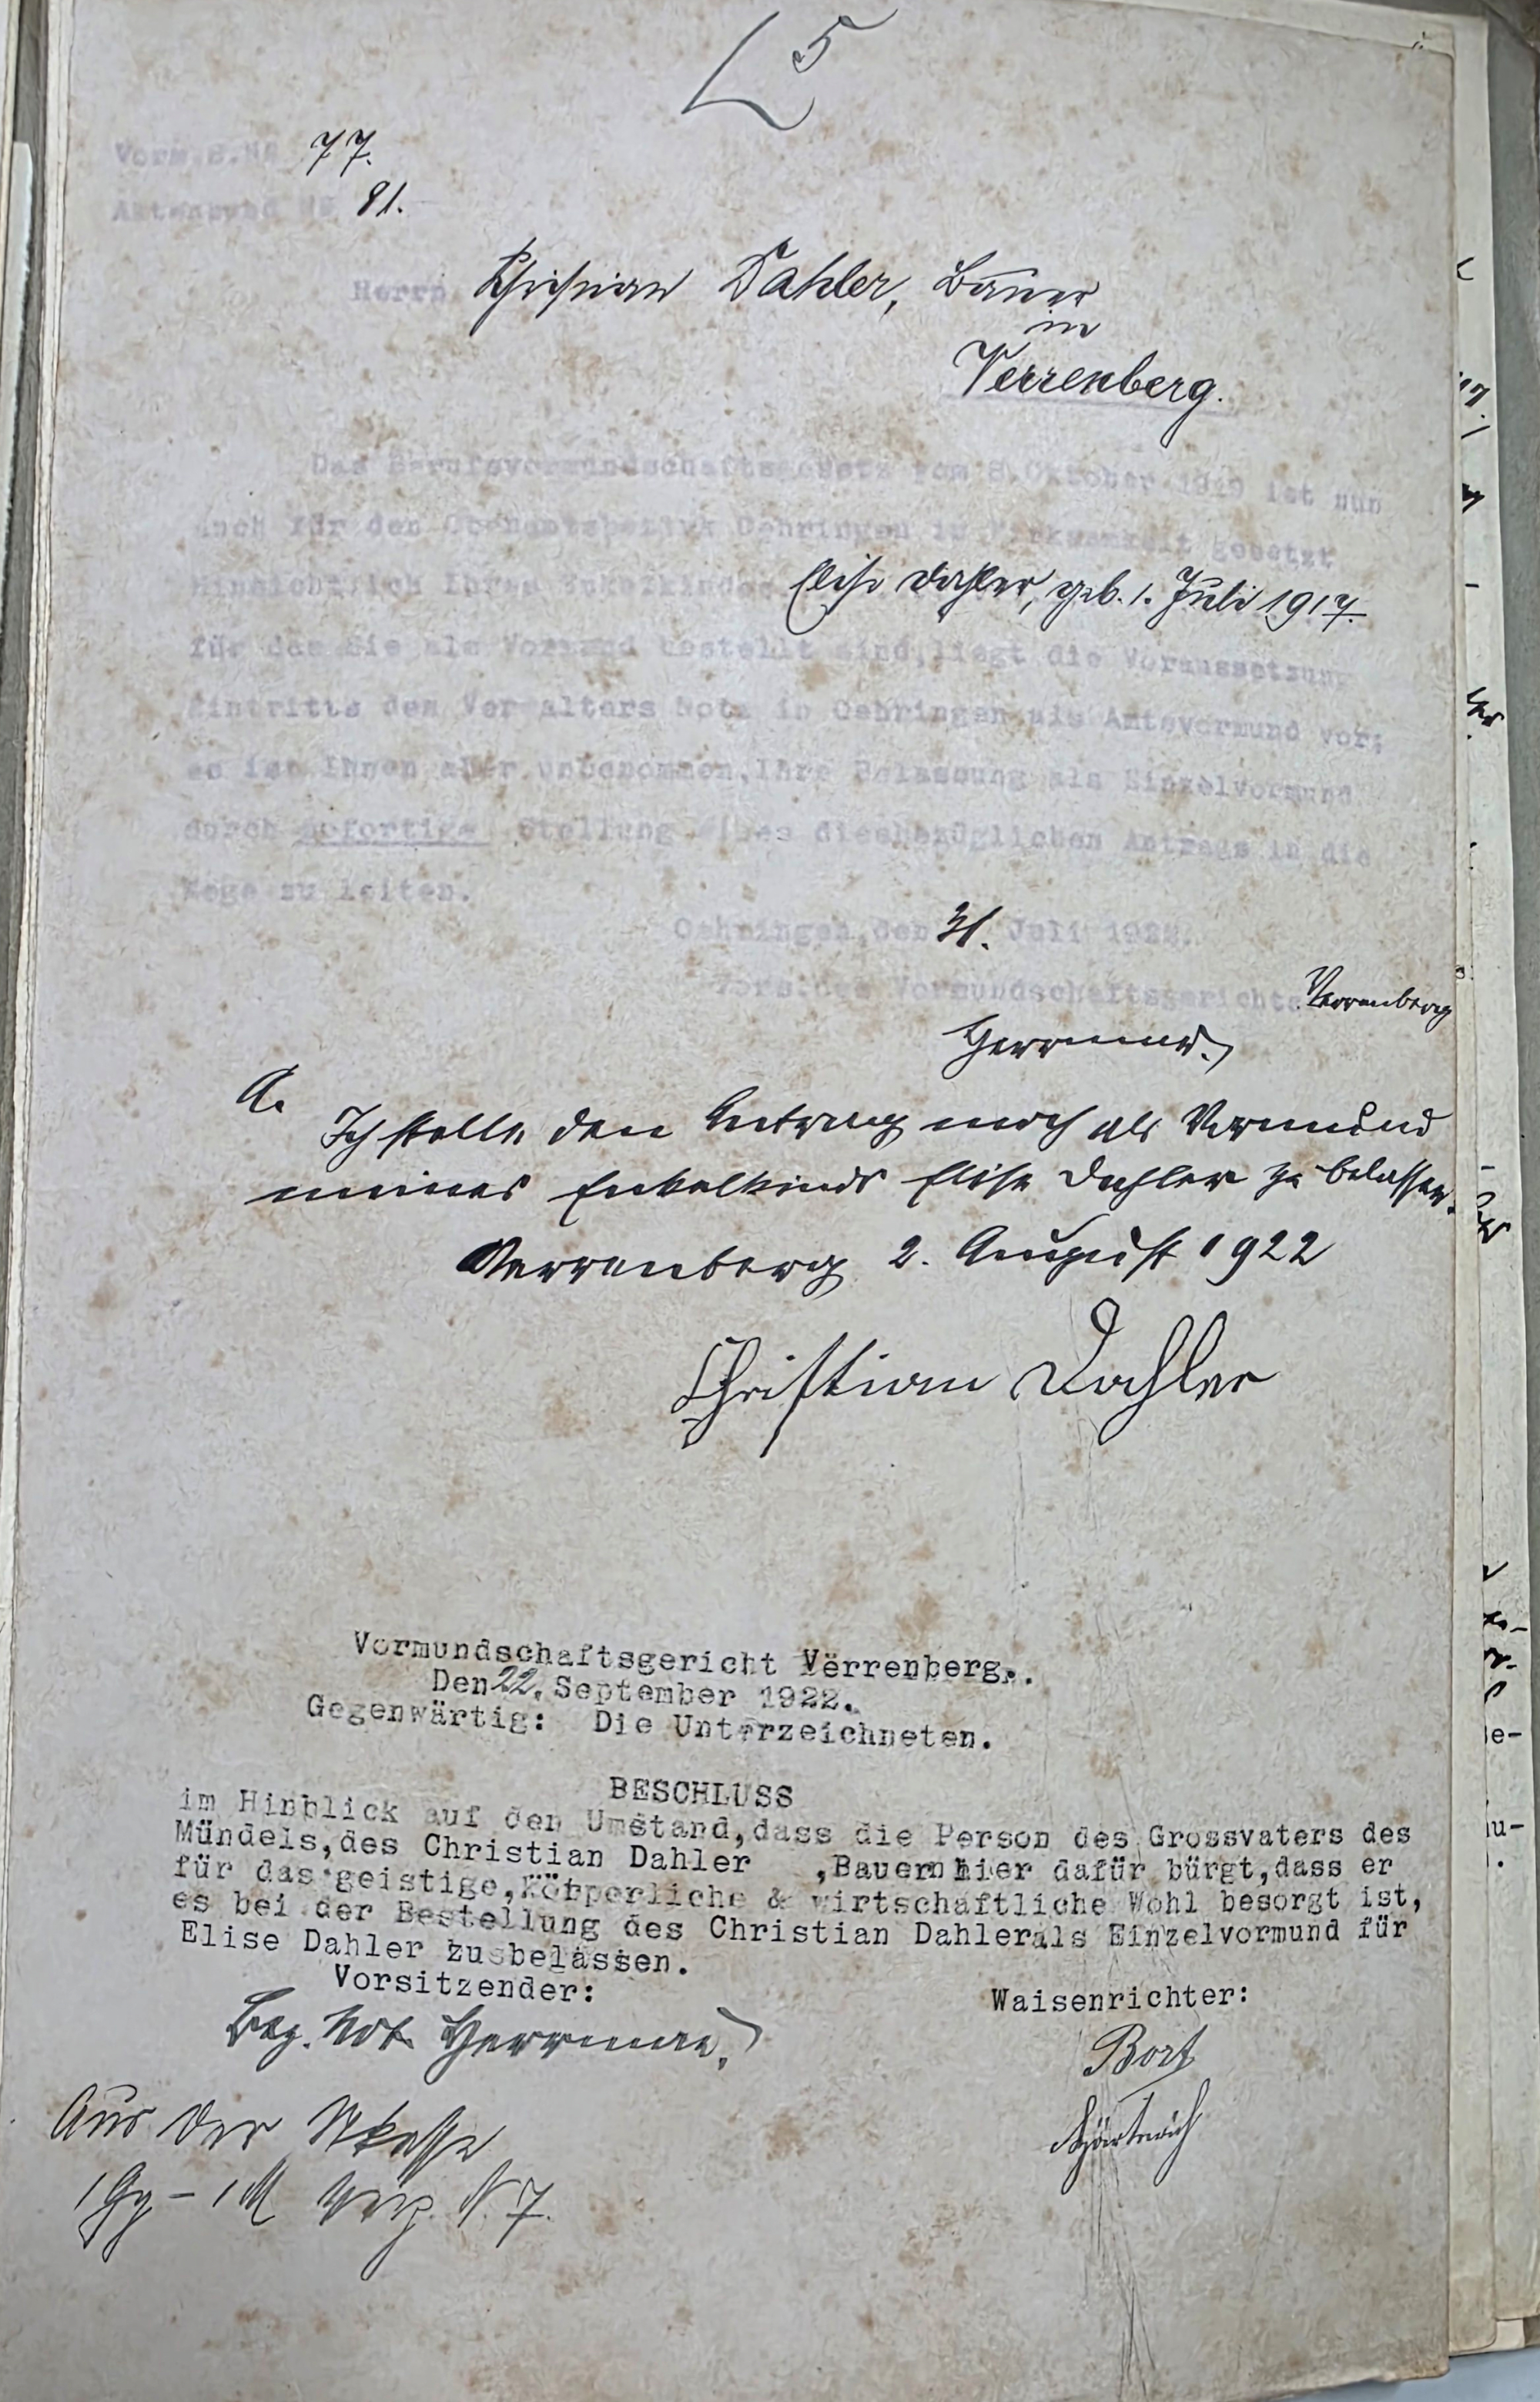 5
Vorm.B.No 77.
Aktenbund No 81.
Herrn Christian Dahler, Bauer
in
Verrenberg.
Das Berufsvormundschaftsgesetz vom 8.Oktober 1919 ist nun
auch für den Oberamtsbezirk Oehringen in Wirksamkeit gesetzt
Hinsichtlich Ihres Enkelkindes Elise Dahler, geb. 1. Juli 1917.
für das Sie als Vormund bestellt sind,liegt die Voraussetzung
Eintritts des Verwalters Notz in Oehringen als Amtsvormund vor;
es ist Ihnen aber unbenommen,Ihre Belassung als Einzelvormund
durch sofortige Stellung eines diesbezüglichen Antrags in die
Wege zu leiten.
Oehringen,den 31. Juli 1922.
Vors.des Vormundschaftsgerichts Verrenberg
Herrmann.
A.
Ich stelle den Antrag mich als Vormund
meines Enkelkinds Elise Dahler zu belassen.
Verrenberg 2. August 1922
Christian Dahler
Vormundschaftsgericht Verrenberg..
Den 22. September 1922.
Gegenwärtig: Die Unterzeichneten.
BESCHLUSS
im Hinblick auf den Umstand,dass die Person des Grossvaters des
Mündels,des Christian Dahler ,Bauern hier dafür bürgt,dass er
für das geistige,körperliche & wirtschaftliche Wohl besorgt ist,
es bei der Bestellung des Christian Dahlerals Einzelvormund für
Elise Dahler zu belassen.
Vorsitzender:
Waisenrichter:
Bez. Not. Herrmann.
Bort
Aus der
1 Gg - 1 M N. 7.